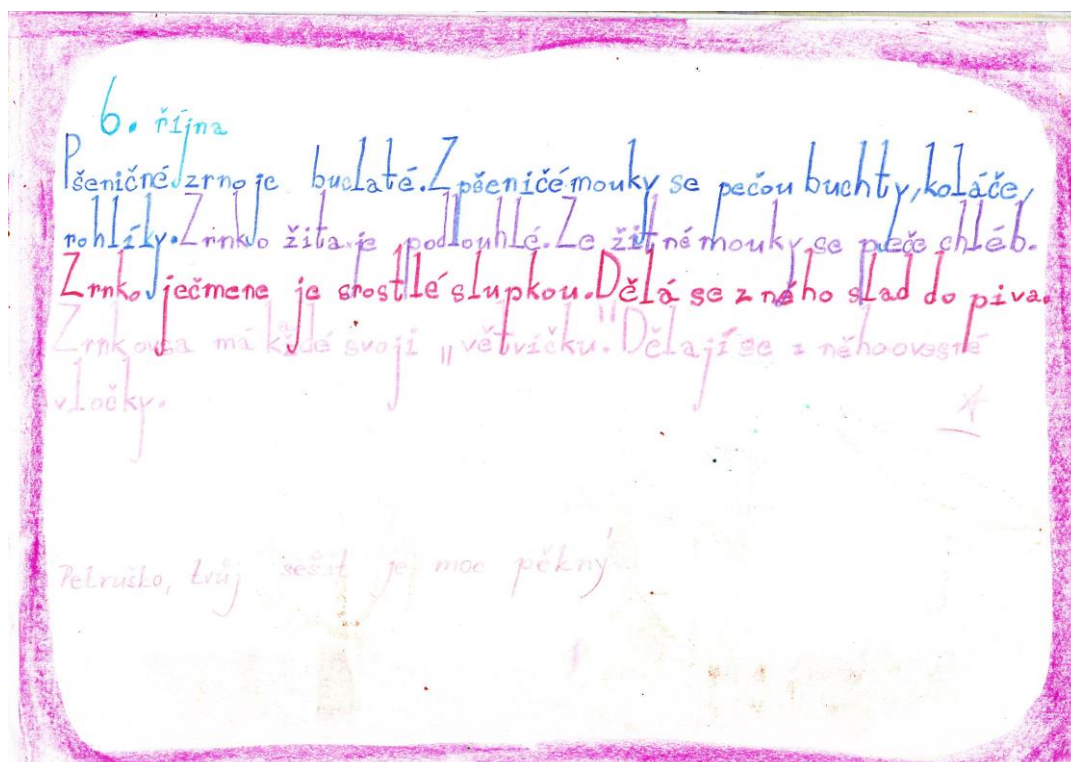 6. října
Pšeničné zrno je buclaté. Z pšeničé mouky se pečou buchty, koláče,
rohlíky. Zrnko žita je podlouhlé. Ze žitné mouky se peče chléb.
Zrnko ječmene je srostlé slupkou. Dělá se z něho slad do piva.
Zrnk ovsa má kždé svoji „větvičku." Dělají se z něho ovesné
vločky.
Petruško, tvůj sešit je moc pěkný